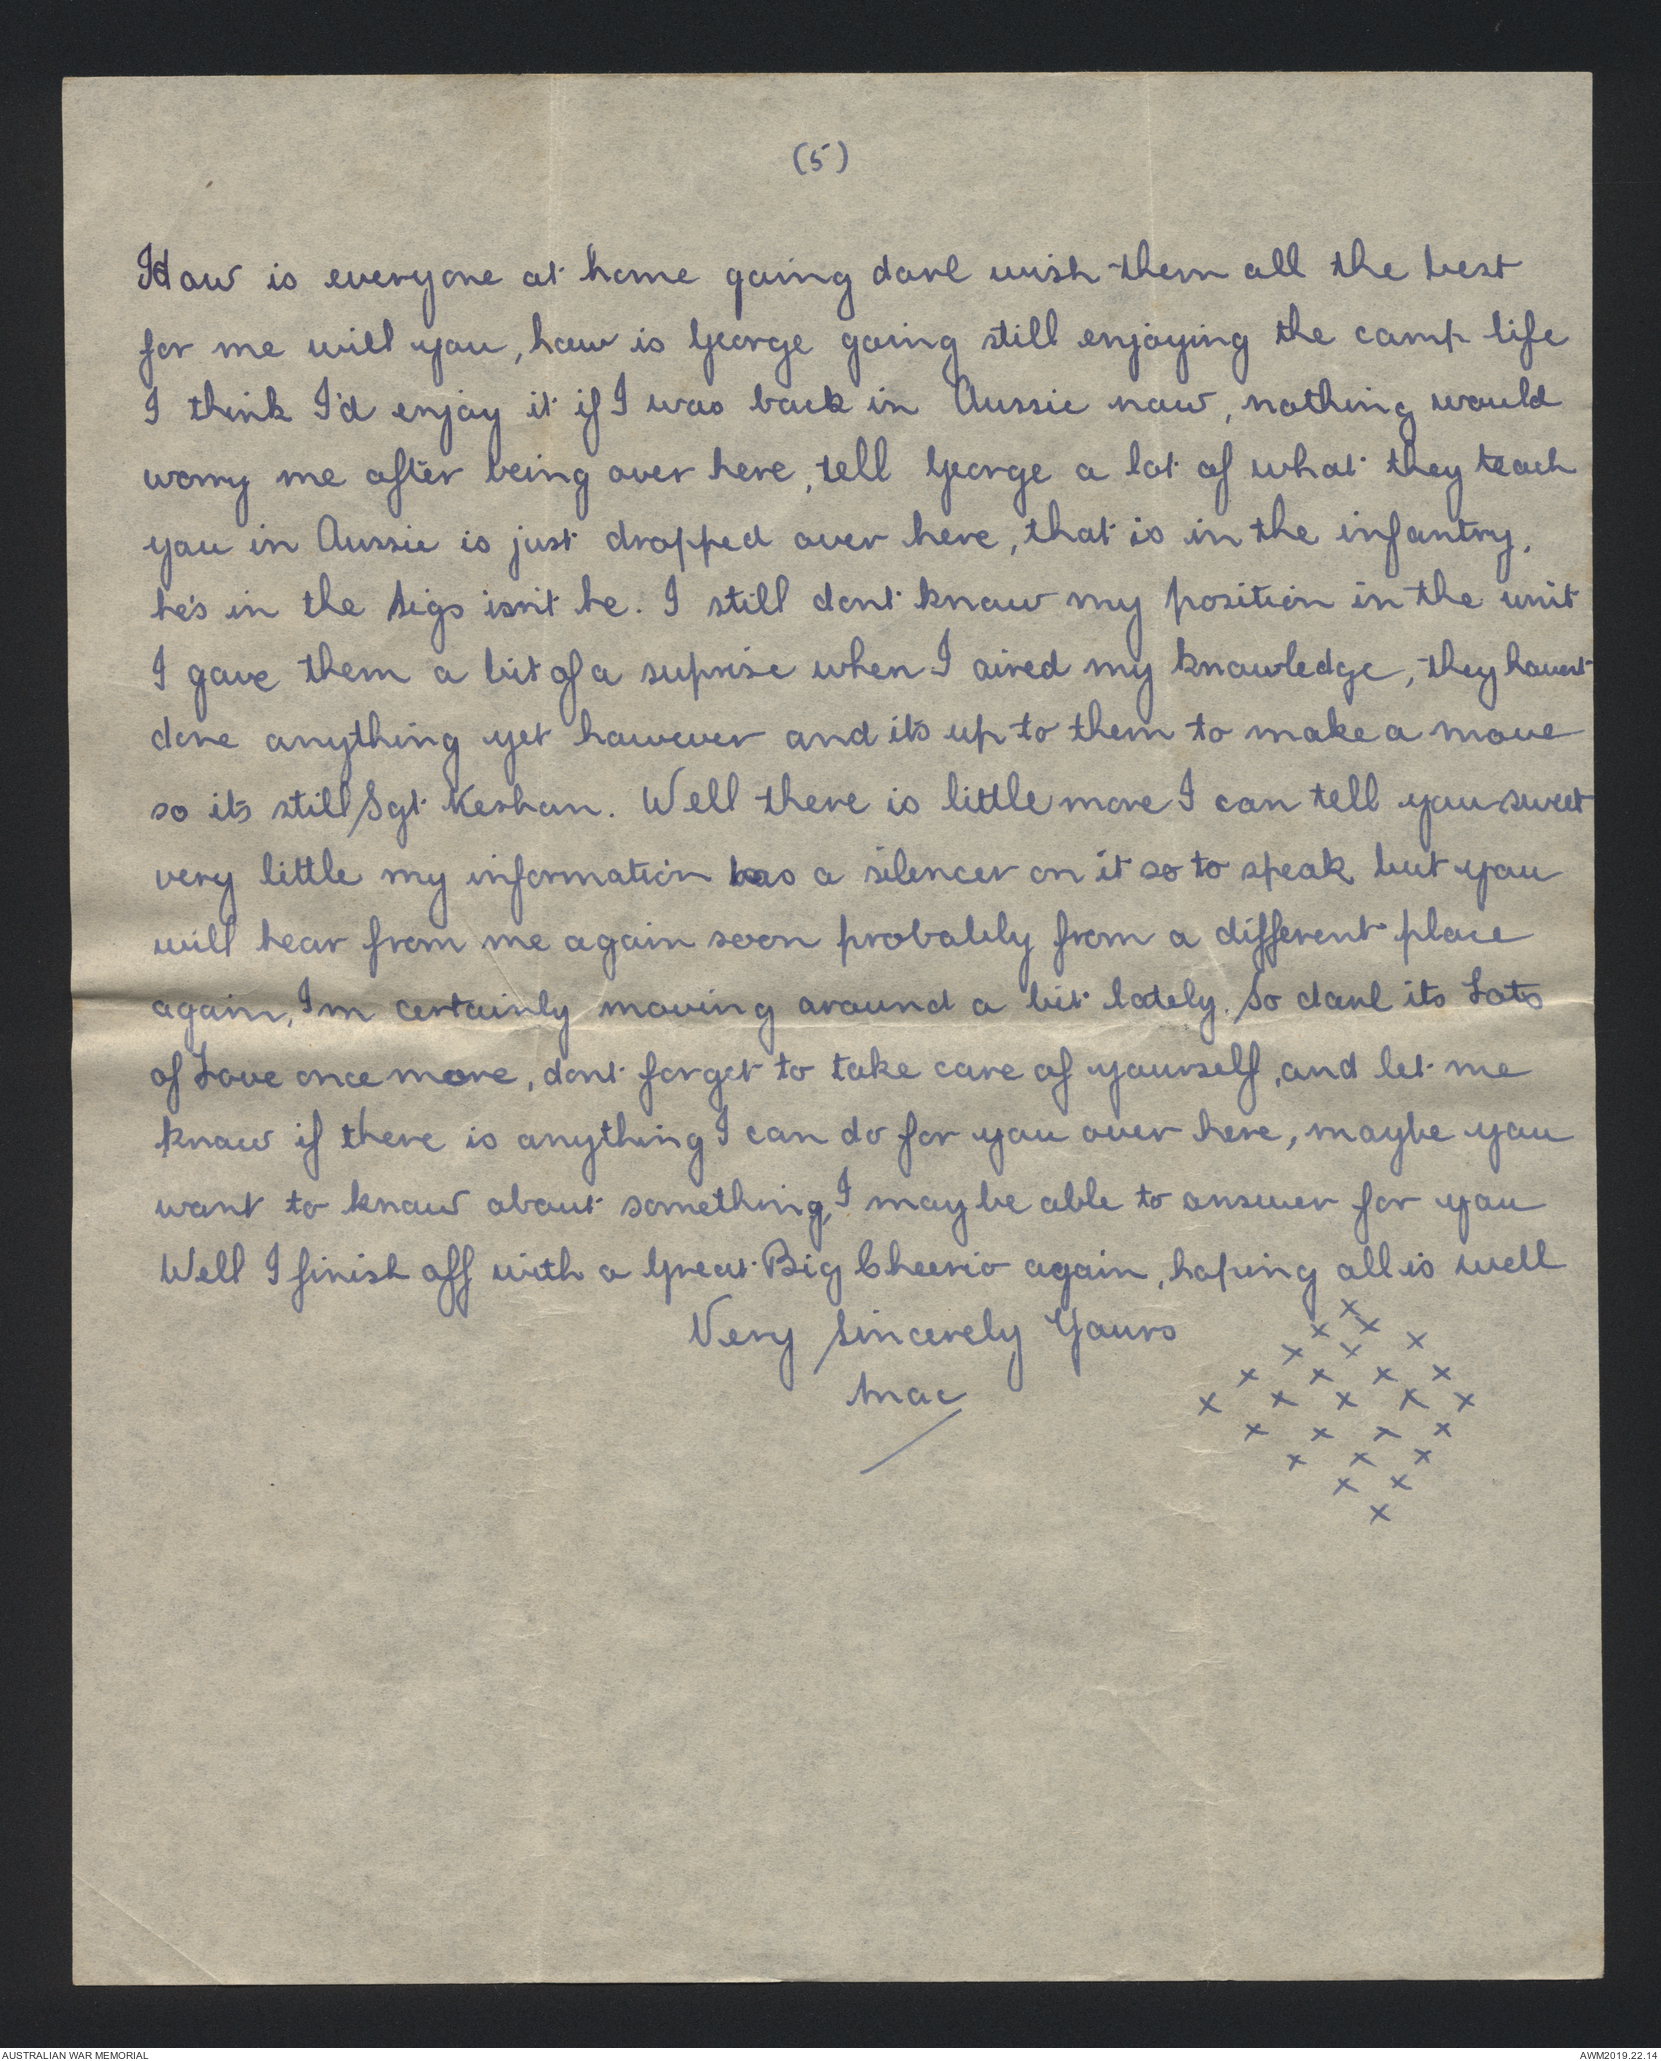 (5)
How is everyone at home going darl wish them all the best
for me will you, how is George going still enjoying the camp life
I think I'd enjoy it if I was back in Aussie now, nothing would
worry me after being over here, tell George a lot of what they teach
you in Aussie is just dropped over here, that is in the infantry,
he's in the Sigs isn't he. I still dont know my position in the unit
I gave them a bit of a suprise when I aired my knowledge, they havent
done anything yet however and its up to them to make a move
so its still Sgt Keshan. Well there is little more I can tell you sweet
very little my information has a silencer on it so to speak but you
will hear from me again soon probably from a different place
again, I'm certainly moving around a bit lately. So darl its Lots
of Love once more, dont forget to take care of yourself, and let me
know if there is anything I can do for you over here, maybe you
want to know about something, I may be able to answer for you
Well I finish off with a Great Big Cheerio again, hoping all is well
Very Sincerely Yours
Mac
x
x x x
x x
x x x x
x x x x x
x x x x
x x x
x x
x
AUSTRALIAN WAR MEMORIAL
AWM2019.22.14